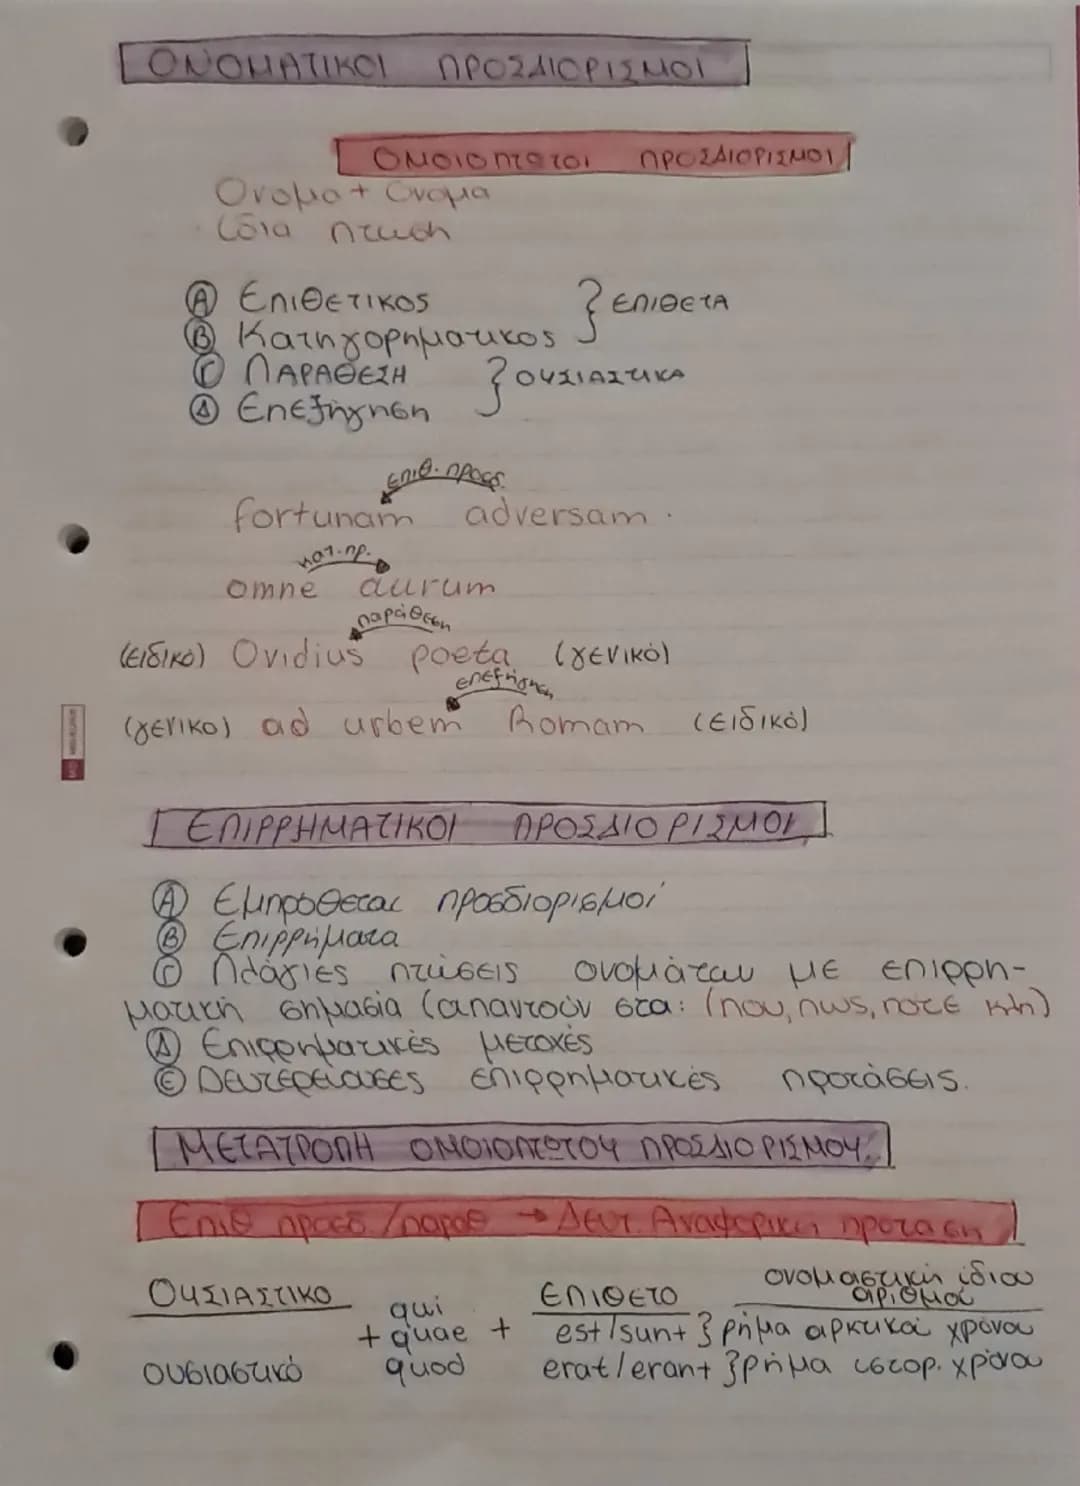 ΟΝΟΜΑΤΙΚΟΙ ΠΡΟΣΔΙΟΡΙΣΜΟΙ
ΟΜΟΙΟΠΤΩΤΟΙ ΠΡΟΣΔΙΟΡΙΣΜΟΙ
Όνομα + Όνομα
ίδια πτώση
Α Επιθετικός } ΕΠΙΘΕΤΑ
Β Κατηγορηματικός
Γ ΠΑΡΑΘΕΣΗ } ΟΥΣΙΑΣΤΙΚΑ
Δ Επεξήγηση
επιθ. προσδ.
fortunam adversam.
κατ. πρ.
omne aurum
παράθεση
(ειδικό) Ovidius poeta (γενικό)
επεξήγηση
(γενικό) ad urbem Romam (ειδικό)
ΕΠΙΡΡΗΜΑΤΙΚΟΙ ΠΡΟΣΔΙΟΡΙΣΜΟΙ
Α Εμπρόθετοι προσδιορισμοί
Β Επιρρήματα
Γ Πλάγιες πτώσεις ονομάτων με επιρρη-
ματική σημασία (απαντούν στα: (που, πως, ποτέ κ.λπ)
Δ Επιρρηματικές μετοχές
Ε Δευτερεύουσες επιρρηματικές προτάσεις.
ΜΕΤΑΤΡΟΠΗ ΟΜΟΙΟΠΤΩΤΟΥ ΠΡΟΣΔΙΟΡΙΣΜΟΥ.
Επιθ προσδ /παραθ → Δευτ. Αναφορική πρόταση
ονομαστική ίδιου
ΟΥΣΙΑΣΤΙΚΟ qui ΕΠΙΘΕΤΟ αριθμού
+ quae + est/sunt } ρήμα αρκτικού χρόνου
ουσιαστικό quod erat/erant } ρήμα ιστορ. χρόνου